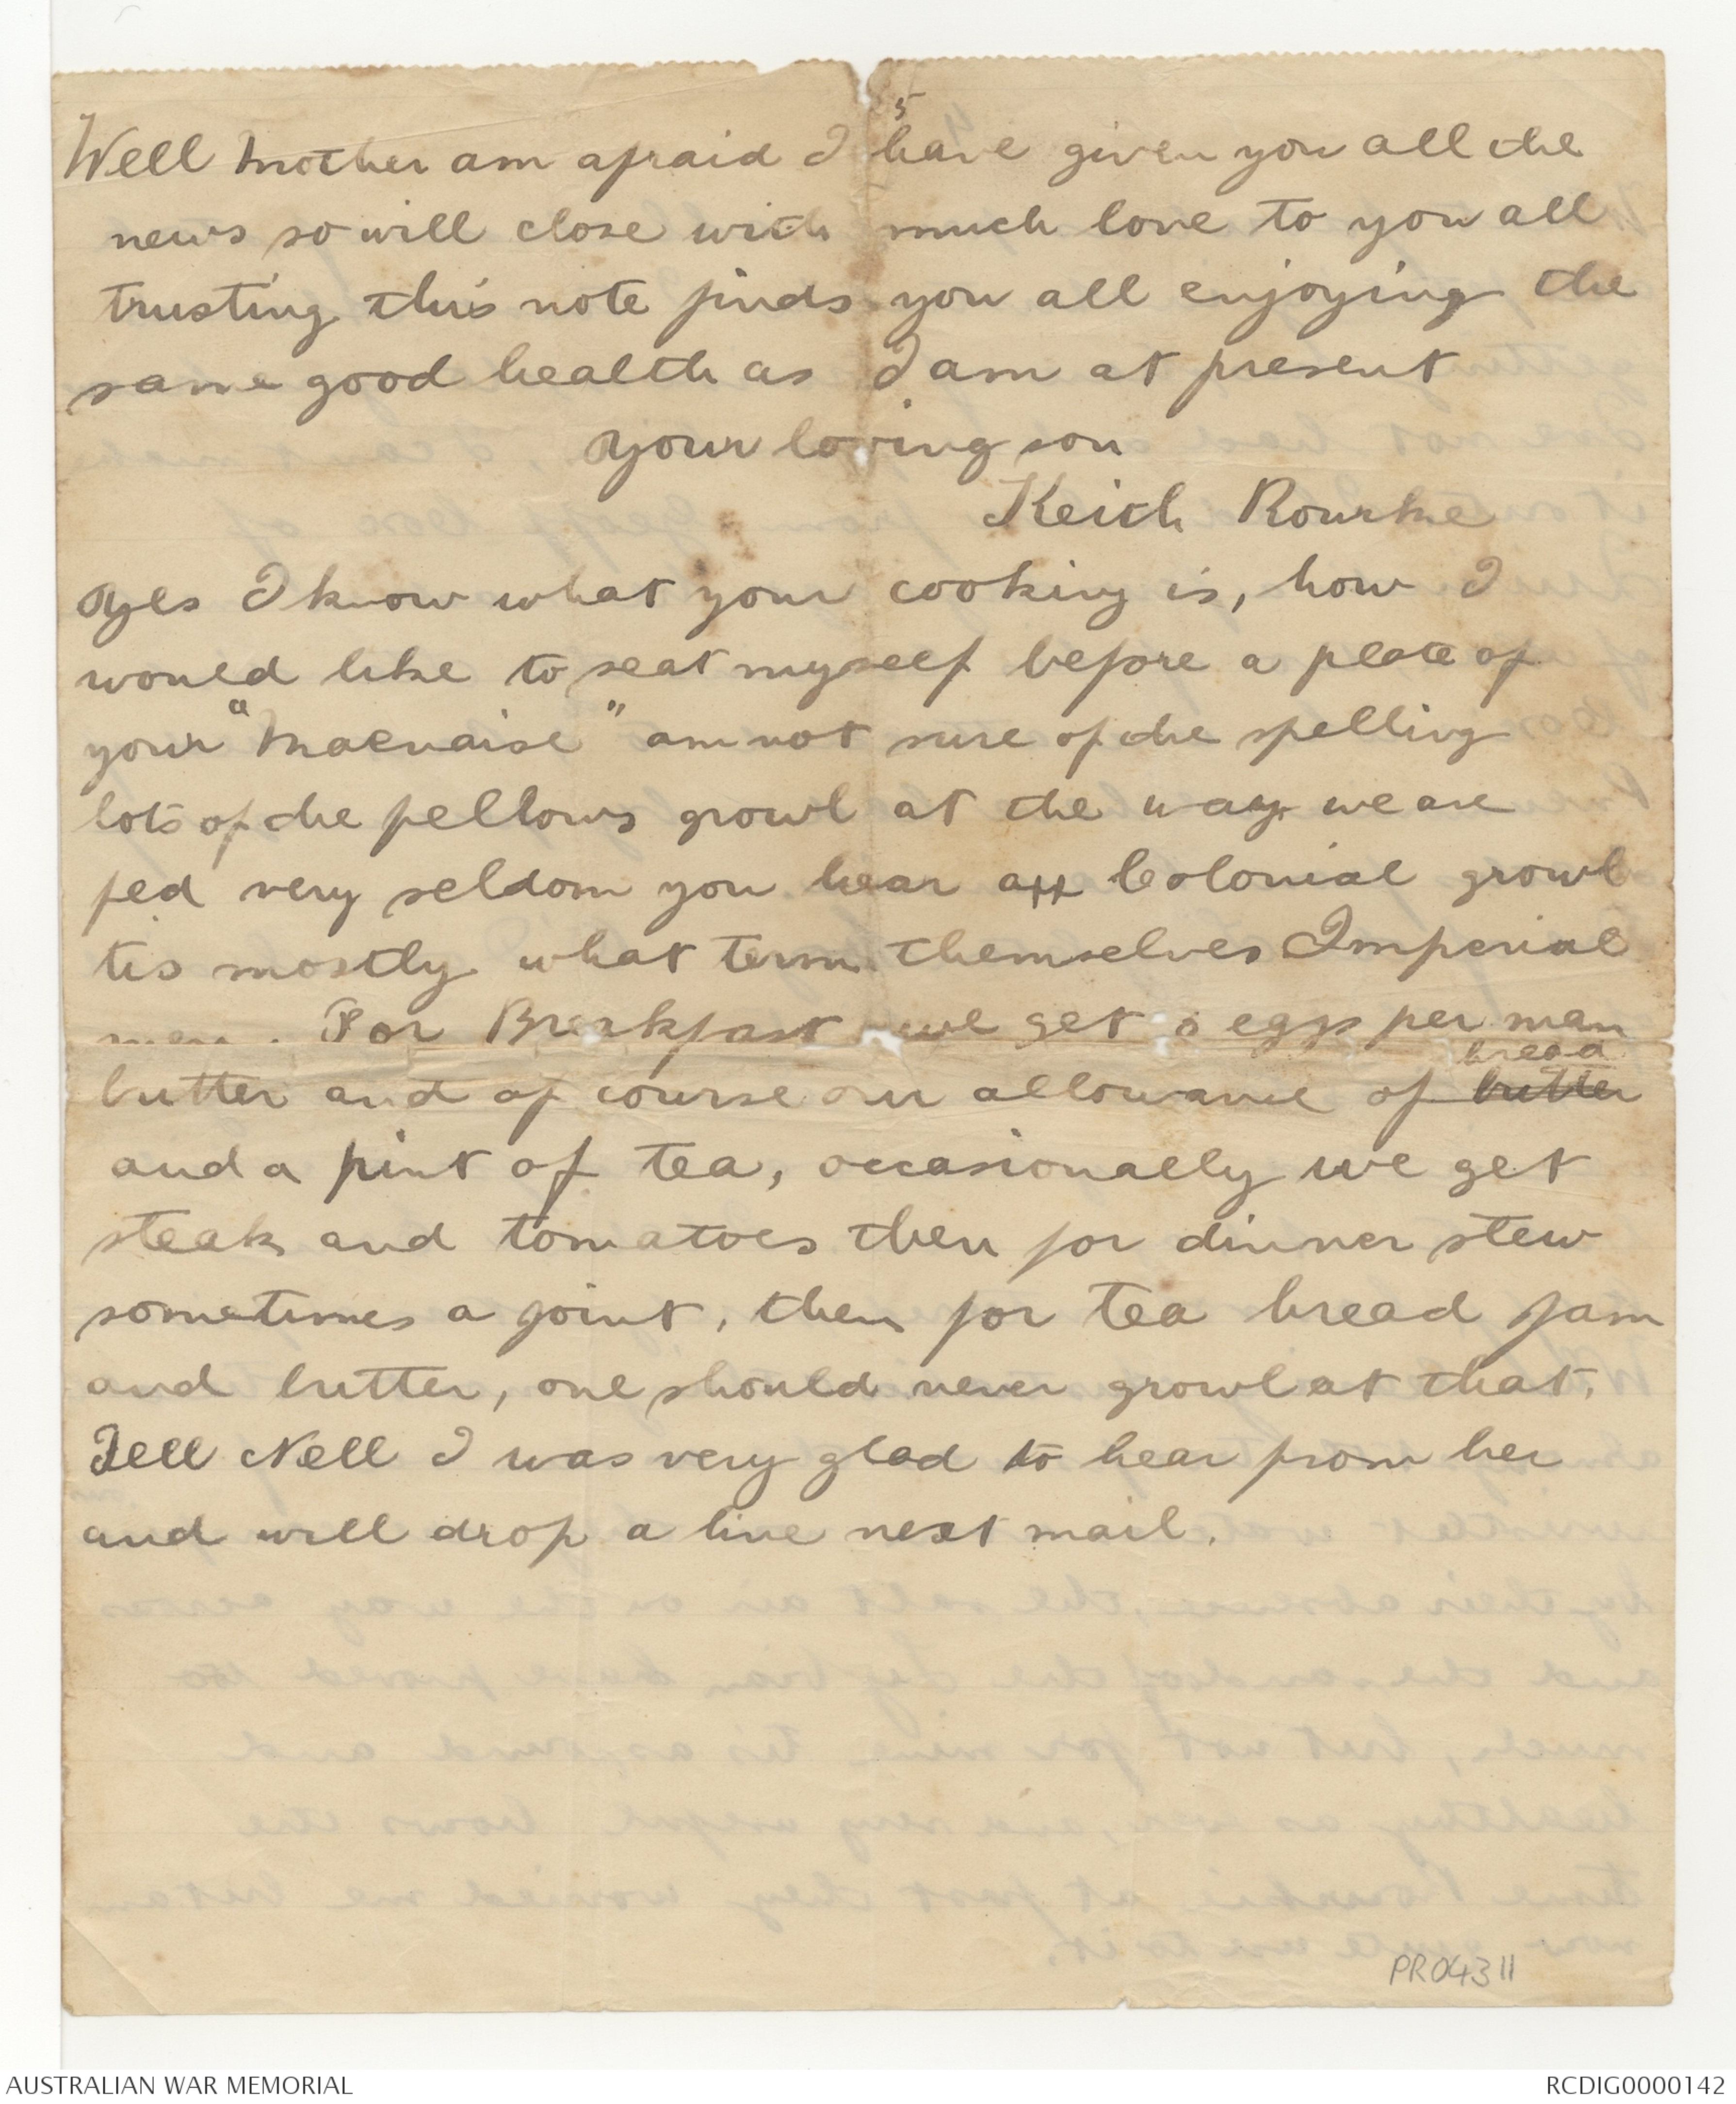 5
Well Mother am afraid I have given you all the
news so will close with much love to you all
trusting this note finds you all enjoying the
same good health as I am at present
Your loving son
Keith Rourke
Yes I know what your cooking is, how I
would like to seat myself before a plate of
your "Maenaise" am not sure of the spelling
lots of the fellows growl at the way we are
fed very seldom you hear a Colonial growl
tis mostly what term themselves Imperial
men. For Breakfast we get eggs per man
bread
butter and of course our allowance of butter
and a pint of tea, occasionally we get
steak and tomatoes then for dinner stew
sometimes a joint, then for tea bread jam
and butter, one should never growl at that.
Tell Nell I was very glad to hear from her
and will drop a line next mail.
PR04311
AUSTRALIAN WAR MEMORIAL
RCDIG0000142